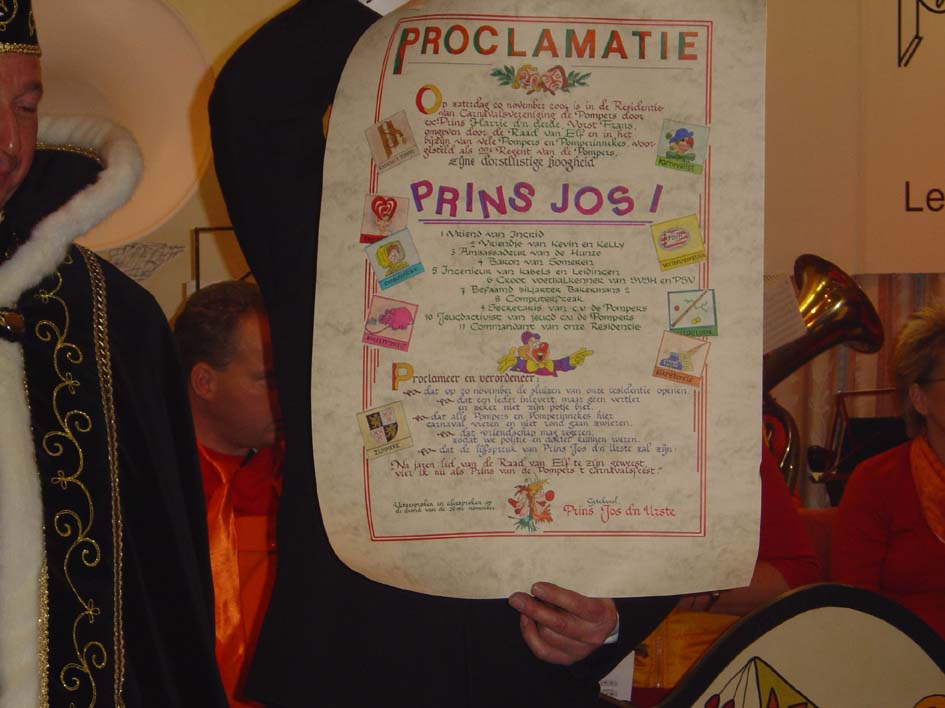 PROCLAMATIE
Op zaterdag 20 november 2004 is in de Residentie
van Carnavalsvereniging de Pompers door
ex-Prins Harrie d'n derde, Vorst Frans,
omgeven door de Raad van Elf en in het
bijzijn van vele Pompers en Pomperinnekes, voor-
gesteld als Regent van de Pompers,
zijne dorstlustige hoogheid
PRINS JOS I
1 Vriend van Ingrid
2 Vriendje van Kevin en Kelly
3 Ambassadeur van de Hunze
4 Baron van Someren
5 Ingenieur van kabels en leidingen
6 Groot voetbalkenner van SVSH en PSV
7 Befaamd biljarter Bakermans 2
8 Computerfreak
9 Secretaris van c.v de Pompers
10 Jeugdactivist van jeugd c.v. de Pompers
11 Commandant van onze Residentie
Proclameer en verordeneer:
dat op 20 november de sluizen van onze residentie openen,
dat een ieder inlevert, maar geen vertier
en zeker niet zijn potje bier.
dat alle Pompers en Pomperinnekes hier
carnaval vieren en niet rond gaan zwieren.
dat vriendschap mag regeren,
zodat we politie en dokter kunnen weren.
dat de lijfspreuk van Prins Jos d'n Urste zal zijn:
"Na jaren lid van de Raad van Elf te zijn geweest,
vier ik nu als Prins van de Pompers 't carnavalsfeest."
Uitgesproken en afgesproken op
de avond van de 20ste november
Getekend,
Prins Jos d'n Urste
Le